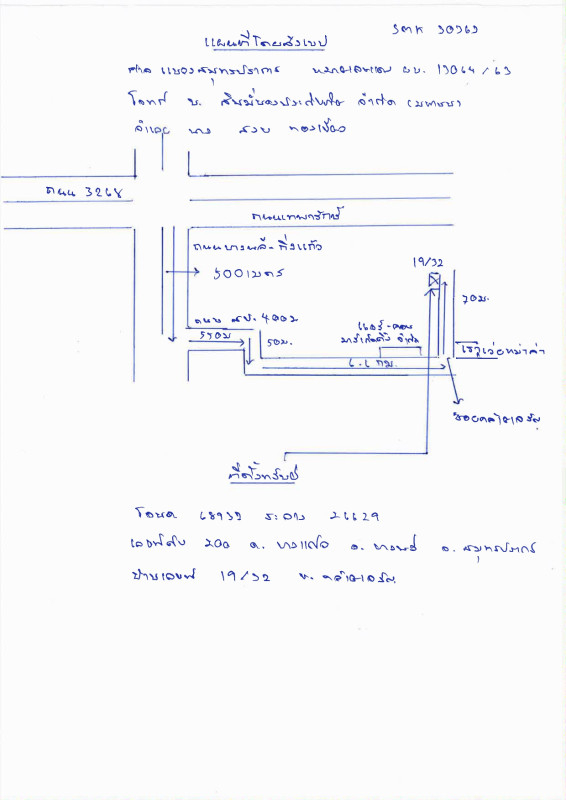 แผนที่โดยสังเขป
ศาล แขวงสมุทรปราการ หมายเลขแดง ผบ. 13064/63
โจทก์ บ. สินมั่นคงประกันภัย จำกัด (มหาชน)
จำเลย นาง
ถนน 3268
ถนนเทพารักษ์
ถนนบางพลี-กิ่งแก้ว
500เมตร
19/32
70ม.
ถนน สป. 4002
550ม
50ม.
จำกัด
6.6 กม.
ที่ตั้งทรัพย์
โฉนด 68939 ระวาง
เลขที่ดิน 200 ต. บางแก้ว อ. บางพลี จ. สมุทรปราการ
บ้านเลขที่ 19/32 ม.